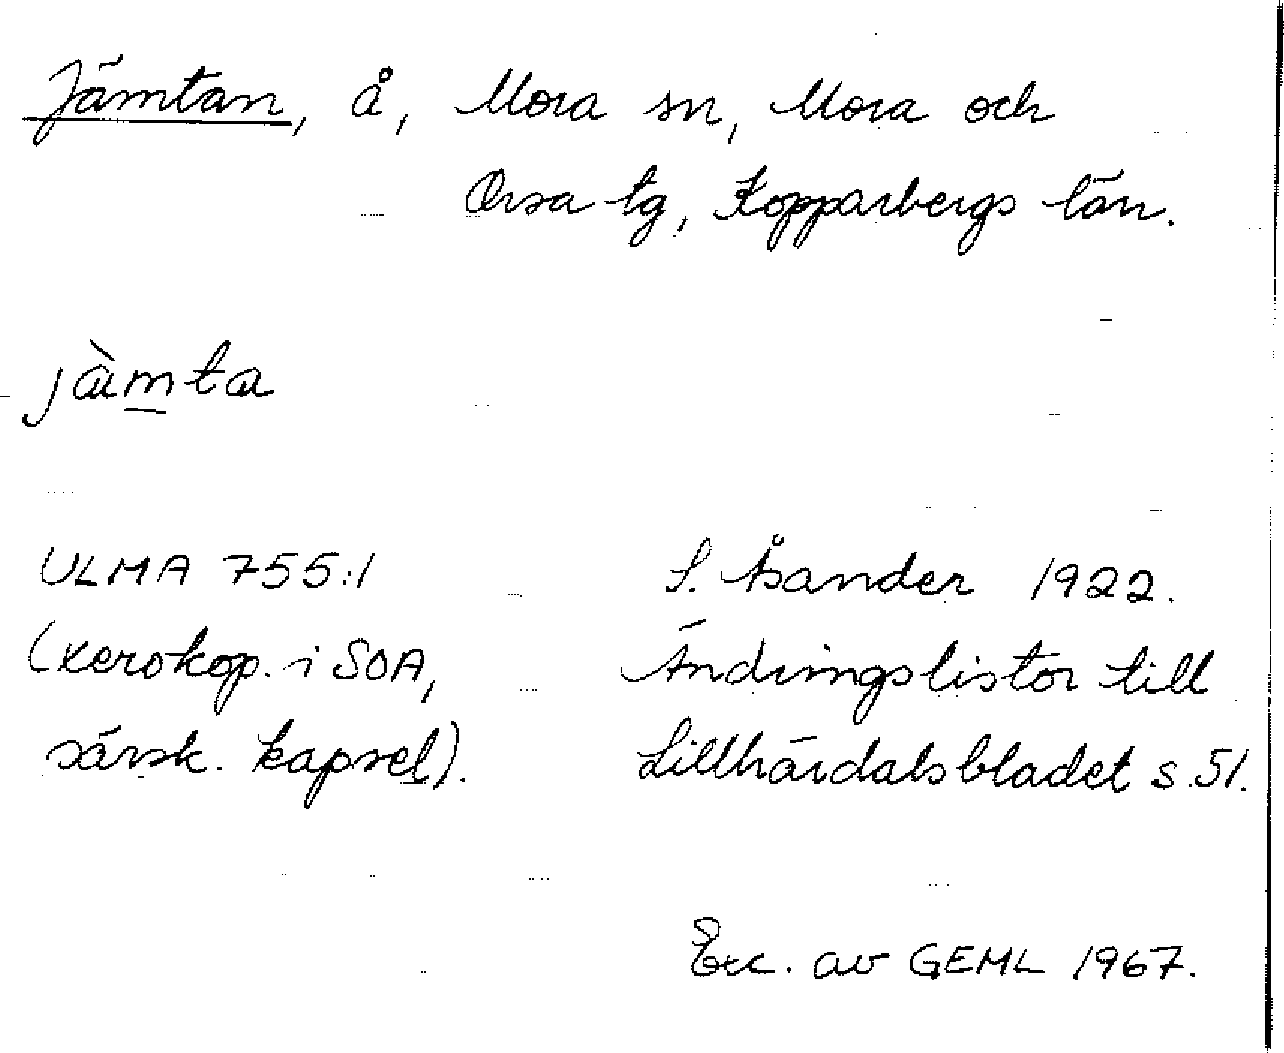 Jämtan, å, Mora sn, Mora och
Orsa tg, Kopparbergs län.
jæ̀mta
ULMA 755:1
(xerokop. i SOA,
särsk. kapsel).
S. Åsander 1922.
Ändringslistor till
Lillhärdalsbladet s. 51.
Exc. av GEML 1967.